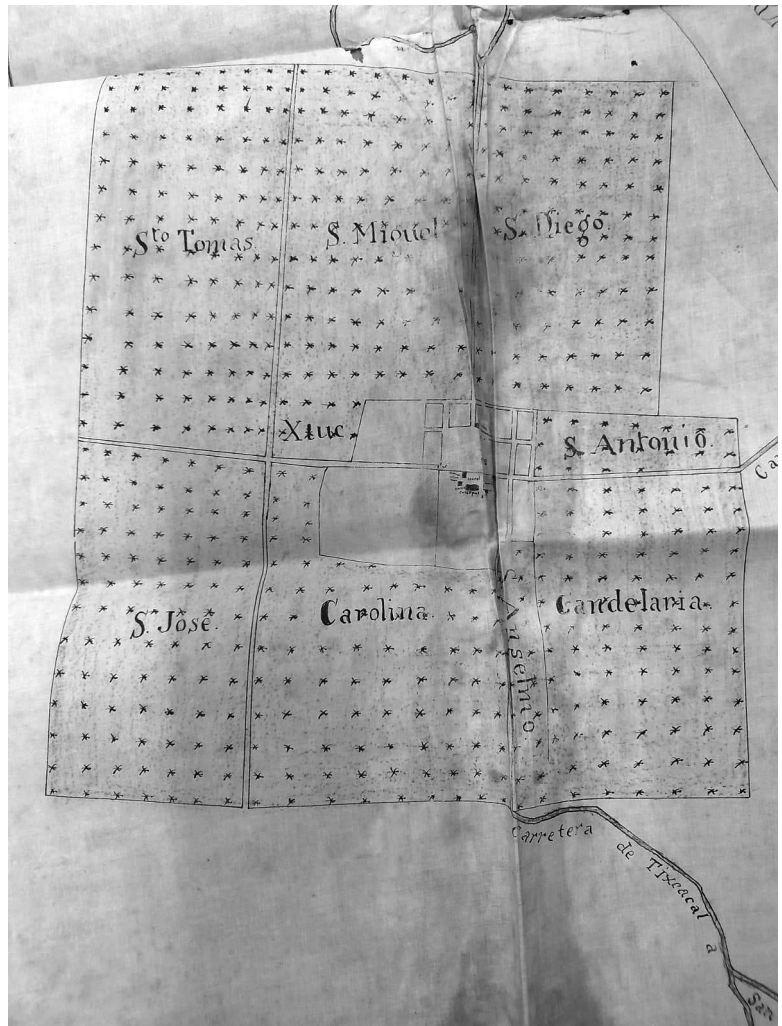 Sto Tomas.
S. Miguel
S. Diego.
Xiuc.
S. Antonio.
S. José.
Carolina.
S. Anselmo.
Candelaria.
Carretera de Tixcacal a San